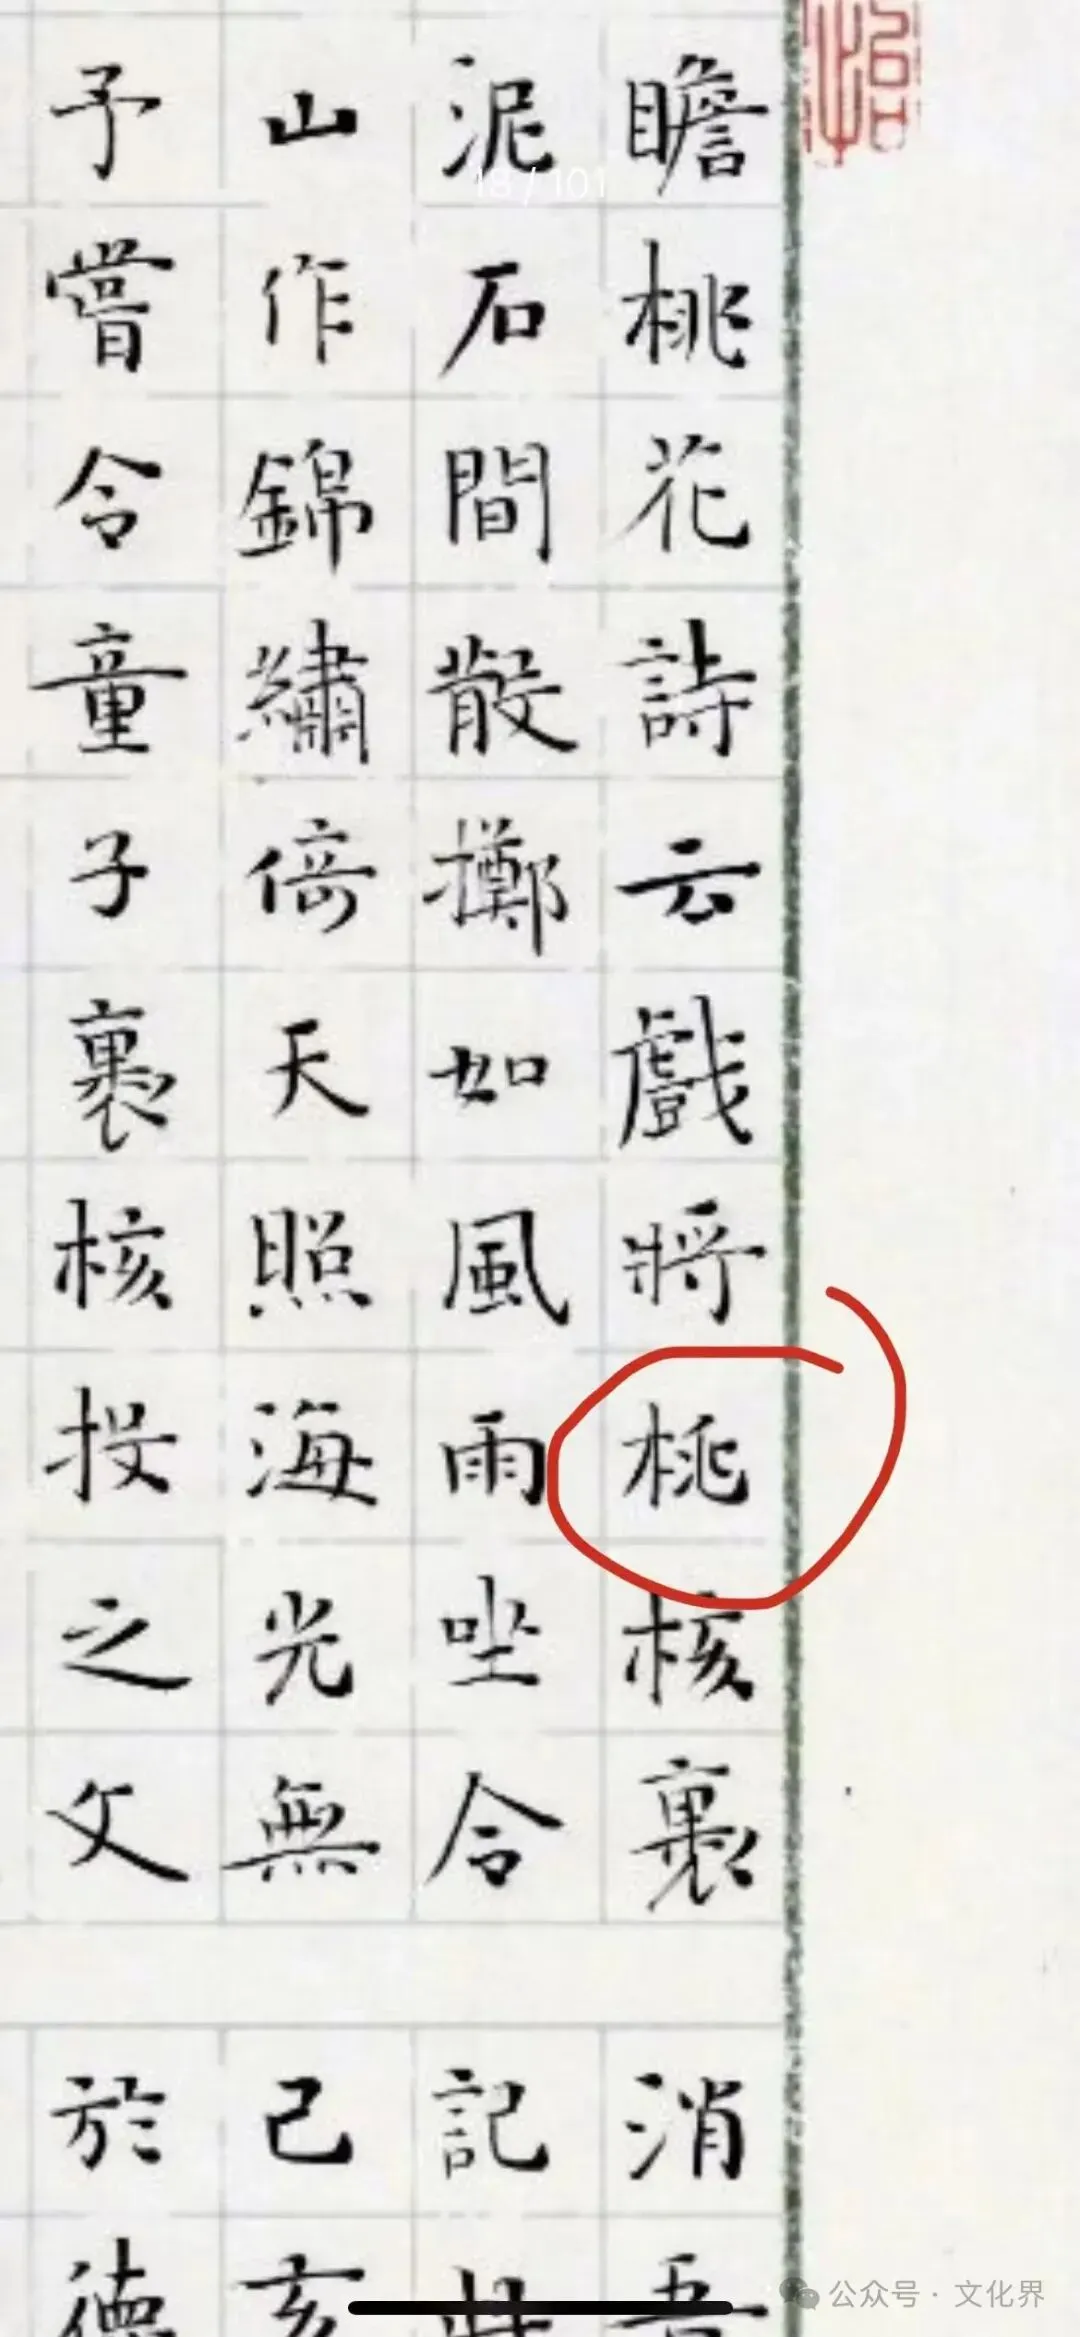 瞻桃花詩云戲將桃核裹
泥石間散擲如風雨坐令
山作錦繡倚天照海光無
予嘗令童子裹核投之文
消吾
記
己亥
於德
18 / 101
公众号 · 文化界